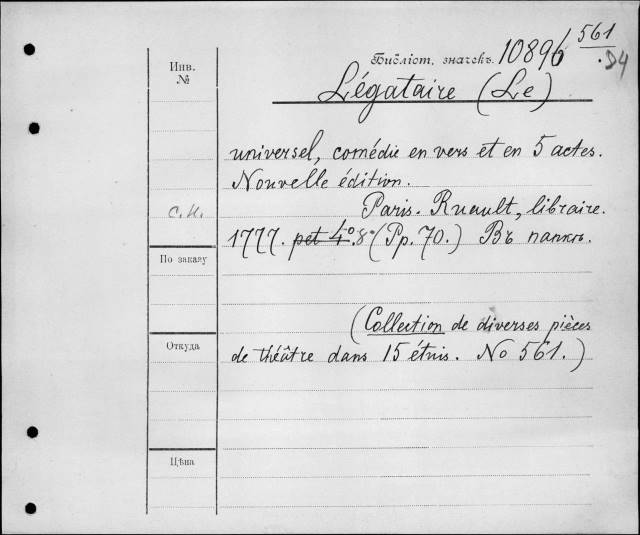 Инв. №
Библіот. значекъ. 10896 561
.94
Légataire (Le)
universel, comédie en vers et en 5 actes.
Nouvelle édition.
с.н.
Paris. Ruault, libraire.
1777. pet 4°. 8° (Pp. 70.) Въ папкѣ.
По заказу
(Collection de diverses pièces
Откуда
de théâtre dans 15 étuis. No 561.)
Цѣна